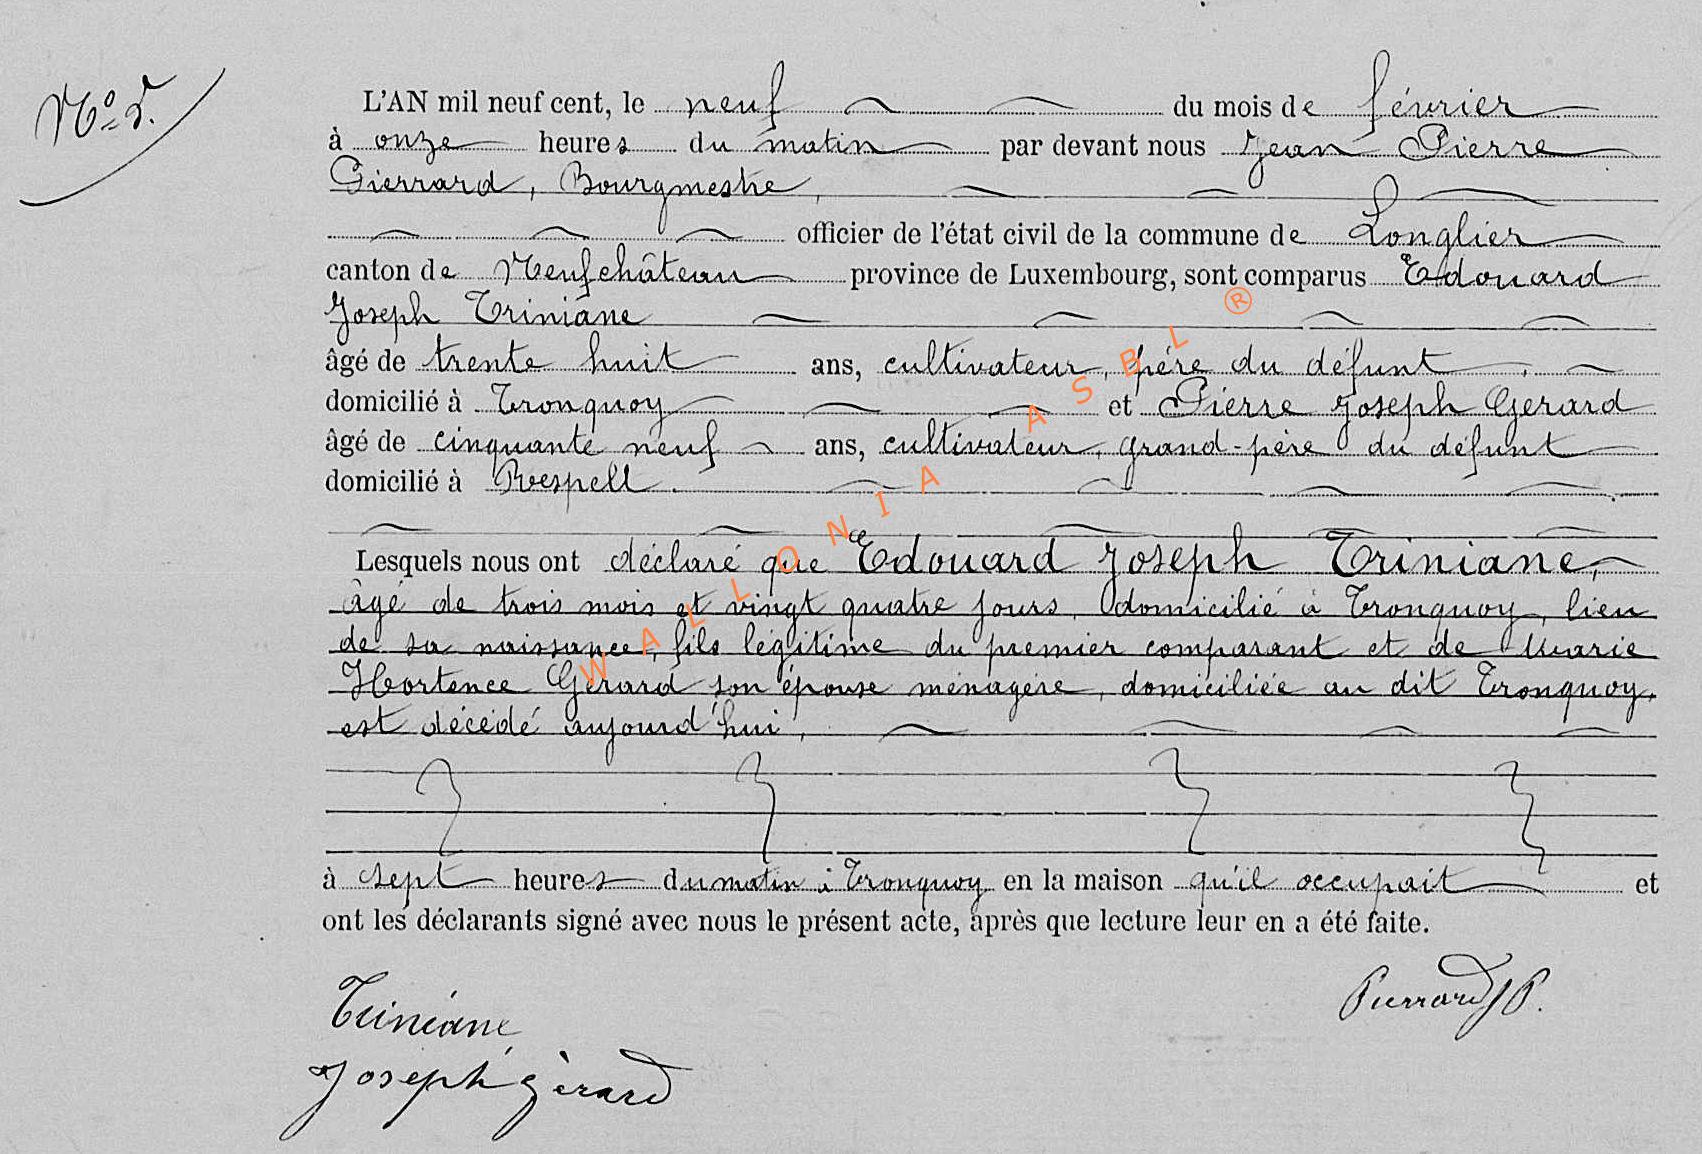 No 5.
L'AN mil neuf cent, le neuf du mois de février
à onze heures du matin par devant nous Jean Pierre
Pierrard, Bourgmestre,
officier de l'état civil de la commune de Longlier
canton de Neufchâteau province de Luxembourg, sont comparus Edouard
Joseph Triniane
âgé de trente huit ans, cultivateur, père du défunt,
domicilié à Tronquoy et Pierre Joseph Gérard
âgé de cinquante neuf ans, cultivateur, grand-père du défunt
domicilié à Respelt.
Lesquels nous ont déclaré que Edouard Joseph Triniane,
âgé de trois mois et vingt quatre jours, domicilié à Tronquoy, lieu
de sa naissance, fils légitime du premier comparant et de Marie
Hortence Gérard son épouse ménagère, domiciliée au dit Tronquoy,
est décédé aujourd'hui,
à sept heures du matin à Tronquoy en la maison qu'il occupait et
ont les déclarants signé avec nous le présent acte, après que lecture leur en a été faite.
Triniane Pierrard JP.
Joseph Gérard
WALLONIA ASBL ®